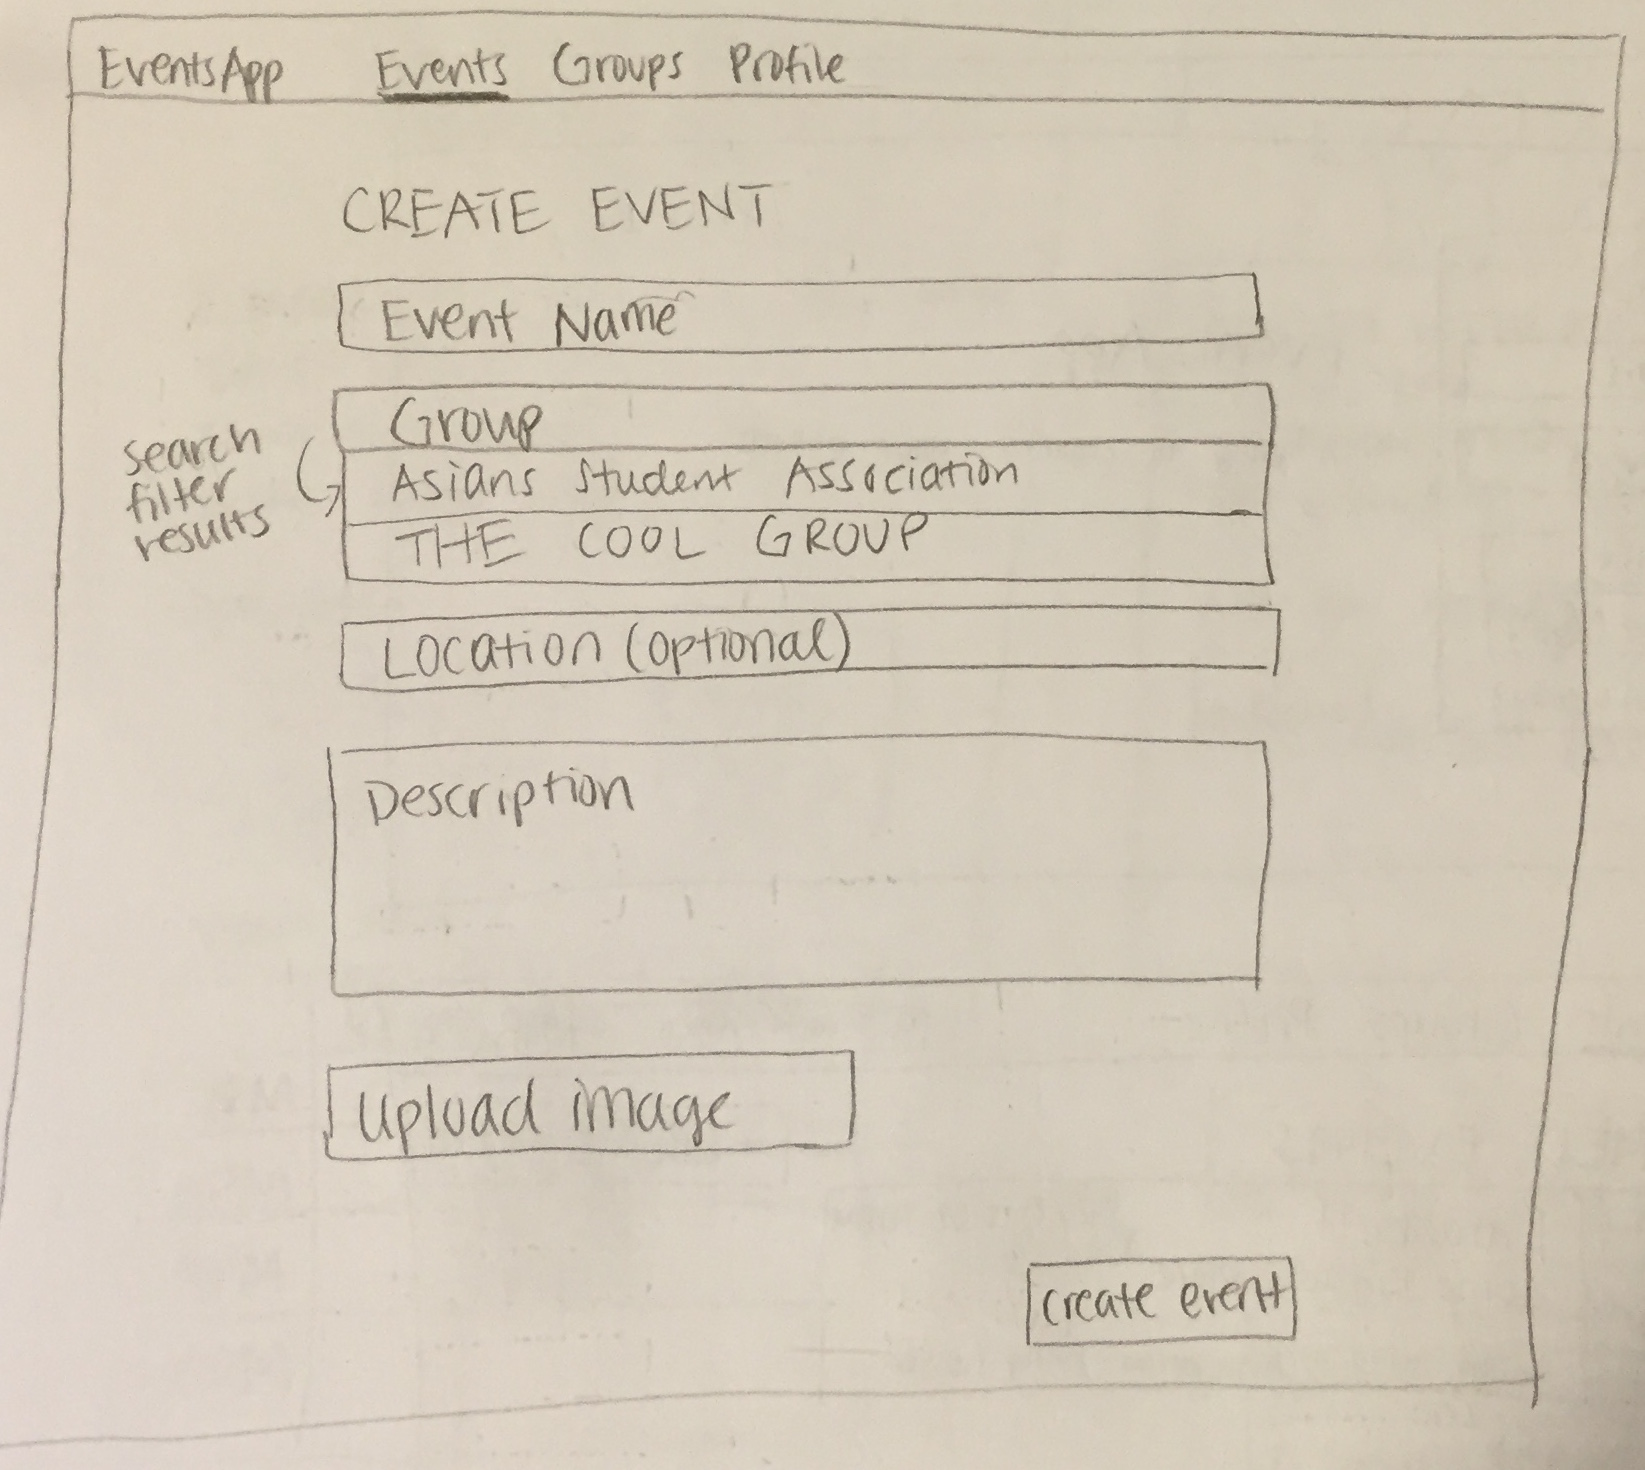 EventsApp Events Groups Profile
CREATE EVENT
Event Name
Group
search
filter
results
Asians Student Association
THE COOL GROUP
Location (optional)
Description
Upload image
create event